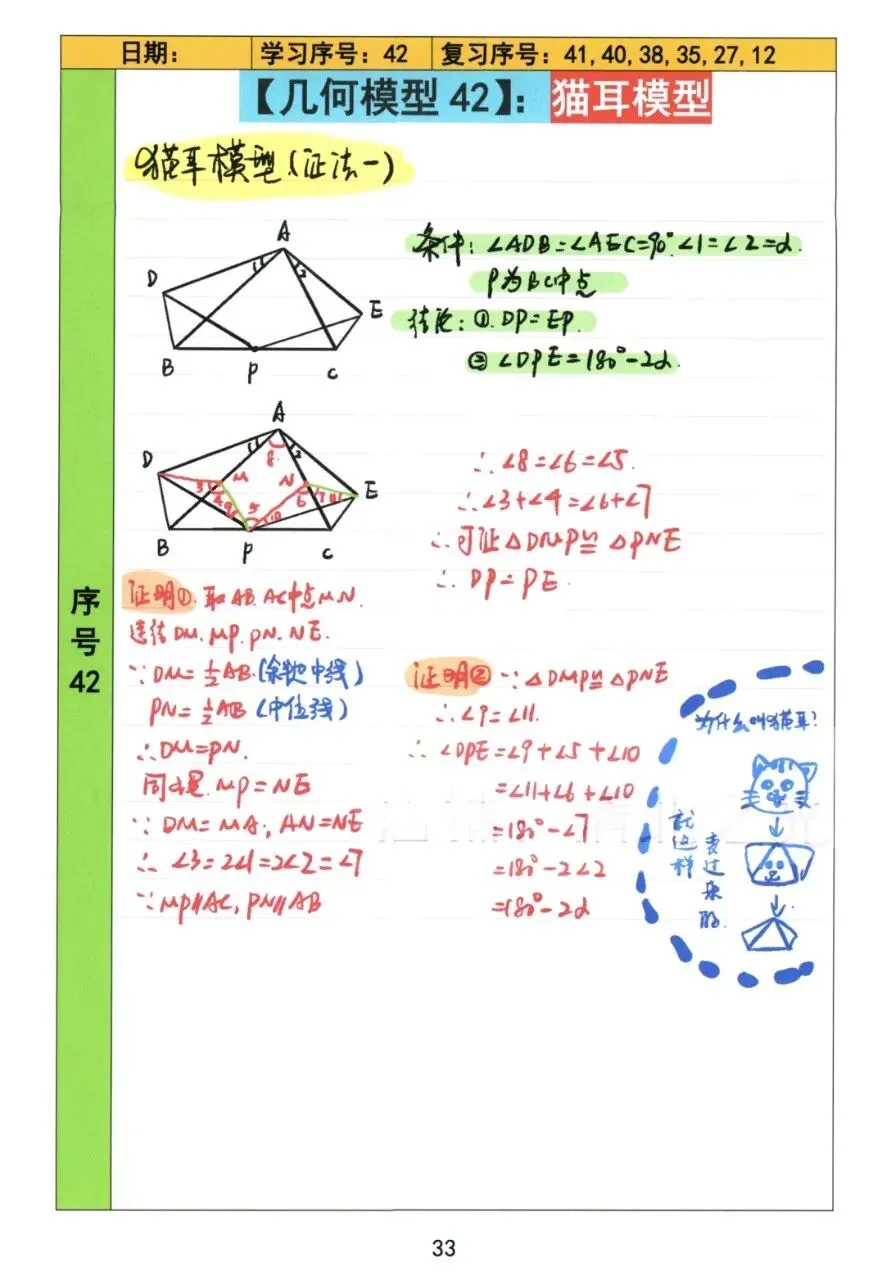 日期: 学习序号: 42 复习序号: 41, 40, 38, 35, 27, 12
【几何模型 42】: 猫耳模型
猫耳模型(证法一)
条件: ∠ADB=∠AEC=90° ∠1=∠2=α.
P为BC中点
结论: ①. DP=EP.
② ∠DPE=180°-2α.
A
1
2
D
E
B
P
C
A
1
2
8
D
M
N
E
3
4
9
5
10
6
7
11
B
P
C
∴∠8=∠6=∠5.
∴∠3+∠4=∠6+∠7
∴可证△DMP≌△PNE
∴ DP=PE.
证明①. 取AB.AC中点M.N.
连结DM.MP.PN.NE.
∵DM=½AB.(斜边中线)
PN=½AB(中位线)
∴DM=PN.
同理.MP=NE
∵DM=MA, AN=NE
∴∠3=2∠1=2∠2=∠7
∵MP∥AC, PN∥AB
证明② ∵△DMP≌△PNE
∴∠9=∠11.
∴∠DPE=∠9+∠5+∠10
=∠11+∠6+∠10
=180°-∠7
=180°-2∠2
=180°-2α
为什么叫猫耳?
就这样
变过来的.
序号 42
33